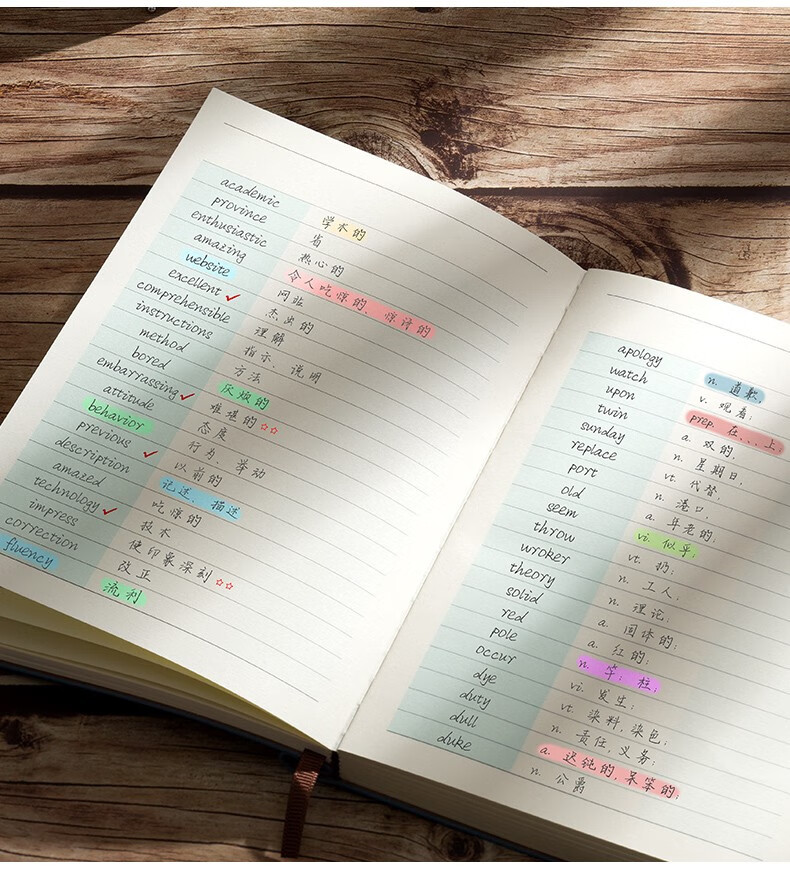 academic 学术的
province 省
enthusiastic 热心的
amazing 令人吃惊的、惊讶的
website 网站
excellent ✓ 杰出的
comprehensible 理解
instructions 指示、说明
method 方法
bored 厌烦的
embarrassing ✓ 难堪的 ☆☆
attitude 态度
behavior 行为、举动
previous ✓ 以前的
description 记述、描述
amazed 吃惊的
technology ✓ 技术
impress 使印象深刻 ☆☆
correction 改正
fluency 流利
apology n. 道歉;
watch v. 观看;
upon prep. 在...上;
twin a. 双的
sunday n. 星期日.
replace vt. 代替.
port n. 港口.
old a. 年老的;
seem vi. 似乎;
throw vt. 扔;
wroker n. 工人.
theory n. 理论;
solid a. 固体的;
red a. 红的;
pole n. 竿; 柱;
occur vi. 发生;
dye vt. 染料,染色;
duty n. 责任,义务;
dull a. 迟钝的,呆笨的;
duke n. 公爵